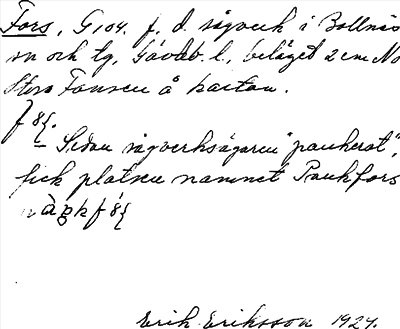 Fors, G 104. f. d. sågverk i Bollnäs
sn och tg, Gävleb. l., beläget 2 cm No
Stora Fansen å kartan.
Sedan sågverksägaren "pankerat",
fick platsen namnet Pankfors
Erik Eriksson 1924.